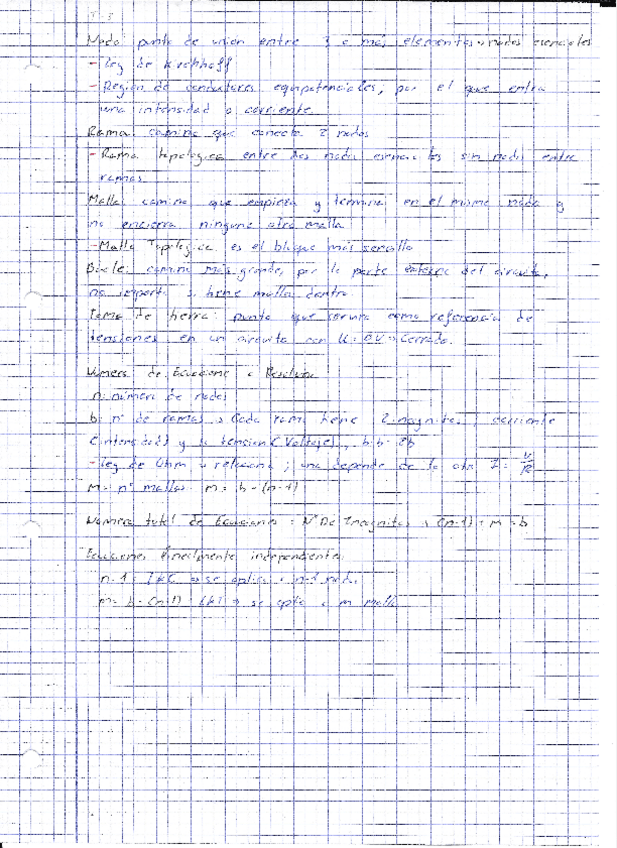 T-3
Nodo: punto de unión entre 3 o más elementos nodos esenciales
- Ley de Kirchhoff
- Región de conductores equipotenciales, por el que entra
una intensidad o corriente
Rama: camino que conecta 2 nodos
- Rama topológica entre dos nodos esenciales sin nodos entre
ramas
Malla: camino que empieza y termina en el mismo nodo y
no encierra ninguna otra malla
- Malla Topológica es el bloque más sencillo
Bucle: camino más grande, por la parte externa del circuito,
no importa si tiene malla dentro
Toma de tierra: punto que servirá como referencia de
tensiones en un circuito con U = 0V Cerrado.
Número de Ecuaciones a Resolver
n: número de nodos
b: nº de ramas → Cada rama tiene 2 incognitas, corriente
(intensidad) y su tension (Voltaje), b+b = 2b
- Ley de Ohm relaciona ; una depende de la otra I = V/R
m = nº mallas m = b - (n-1)
Número total de Ecuaciones = Nº De Incognitas → (n-1) + m = b
Ecuaciones linealmente independientes
n-1 : LKC → se aplica a n-1 nodos
m = b - (n-1) : LKV → se aplica a m mallas